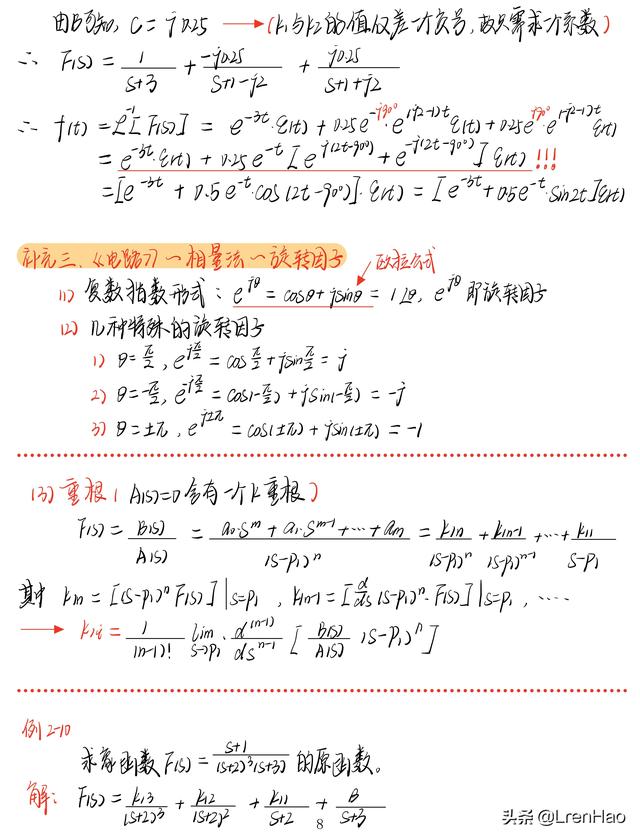 由B可知, C = j0.25 → (k1与k2的值仅差一个负号, 故只需求一个系数)
∴ F(s) = 1/(s+3) + -j0.25/(s+1-j2) + j0.25/(s+1+j2)
∴ f(t) = ℒ⁻¹[F(s)] = e^{-3t}·ε(t) + 0.25e^{-j90°}·e^{(j2-1)t}ε(t) + 0.25e^{j90°}·e^{(-j2-1)t}ε(t)
= e^{-3t}·ε(t) + 0.25e^{-t}[e^{j(2t-90°)} + e^{-j(2t-90°)}]ε(t) !!!
= [e^{-3t} + 0.5e^{-t}·cos(2t-90°)]·ε(t) = [e^{-3t} + 0.5e^{-t}·sin2t]ε(t)
补充三、《电路》—相量法—旋转因子 欧拉公式
(1) 复数指数形式: e^{jθ} = cosθ + jsinθ = 1∠θ, e^{jθ} 即旋转因子
(2) 几种特殊的旋转因子
1) θ = π/2, e^{jπ/2} = cosπ/2 + jsinπ/2 = j
2) θ = -π/2, e^{-jπ/2} = cos(-π/2) + jsin(-π/2) = -j
3) θ = ±π, e^{j±π} = cos(±π) + jsin(±π) = -1
(3) 重根 ( A(s)=0 含有一个k重根 )
F(s) = B(s)/A(s) = (a₀·s^m + a₁·s^{m-1} + ··· + a_m)/(s-p₁)^n = k_{1n}/(s-p₁)^n + k_{1n-1}/(s-p₁)^{n-1} + ··· + k_{11}/(s-p₁)
其中 k_{1n} = [(s-p₁)^n F(s)]|s=p₁, k_{1n-1} = [d/ds (s-p₁)^n·F(s)]|s=p₁, ····
→ k_{1i} = 1/(n-1)! lim_{s→p₁} · d^{(n-1)}/ds^{n-1} [B(s)/A(s) (s-p₁)^n]
例2-10
求象函数F(s) = (s+1)/((s+2)³(s+3)) 的原函数。
解: F(s) = k₁₃/(s+2)³ + k₁₂/(s+2)² + k₁₁/(s+2) + B/(s+3)
8
头条 @LrenHao